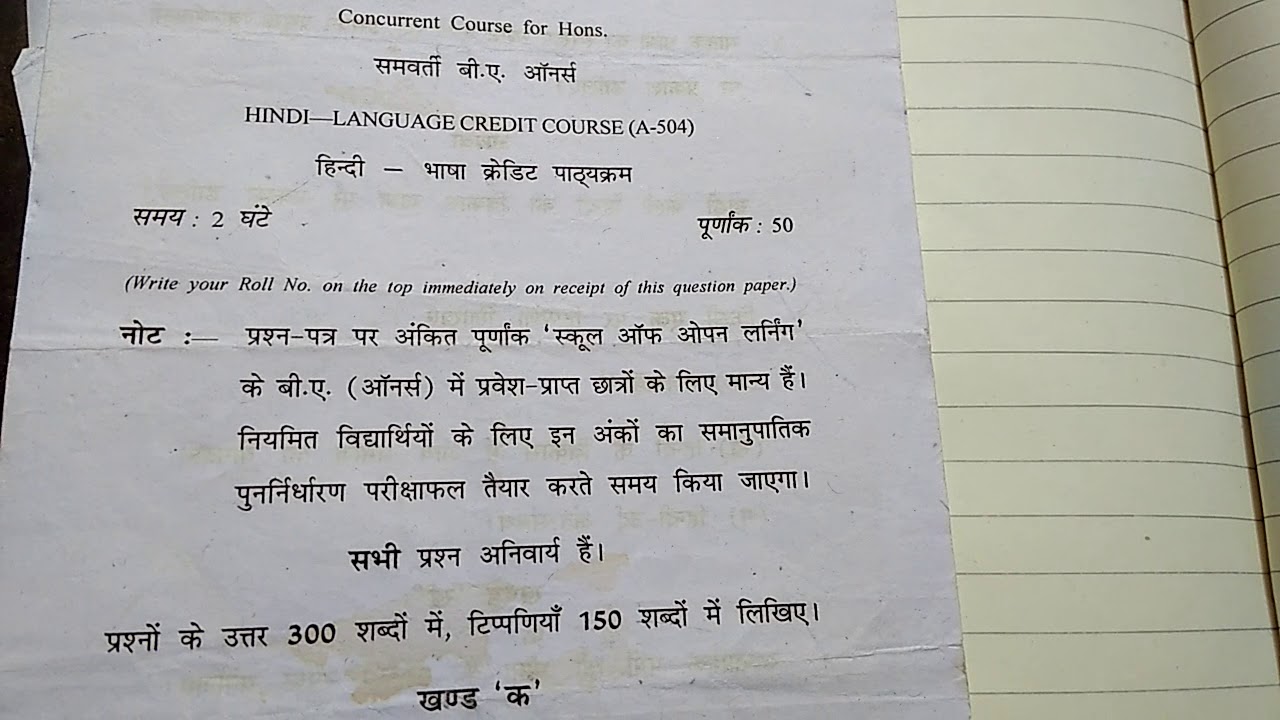 Concurrent Course for Hons.
समवर्ती बी.ए. ऑनर्स
HINDI—LANGUAGE CREDIT COURSE (A-504)
हिन्दी — भाषा क्रेडिट पाठ्यक्रम
समय : 2 घंटे पूर्णांक : 50
(Write your Roll No. on the top immediately on receipt of this question paper.)
नोट :— प्रश्न-पत्र पर अंकित पूर्णांक ‘स्कूल ऑफ ओपन लर्निंग’
के बी.ए. (ऑनर्स) में प्रवेश-प्राप्त छात्रों के लिए मान्य हैं।
नियमित विद्यार्थियों के लिए इन अंकों का समानुपातिक
पुनर्निर्धारण परीक्षाफल तैयार करते समय किया जाएगा।
सभी प्रश्न अनिवार्य हैं।
प्रश्नों के उत्तर 300 शब्दों में, टिप्पणियाँ 150 शब्दों में लिखिए।
खण्ड ‘क’